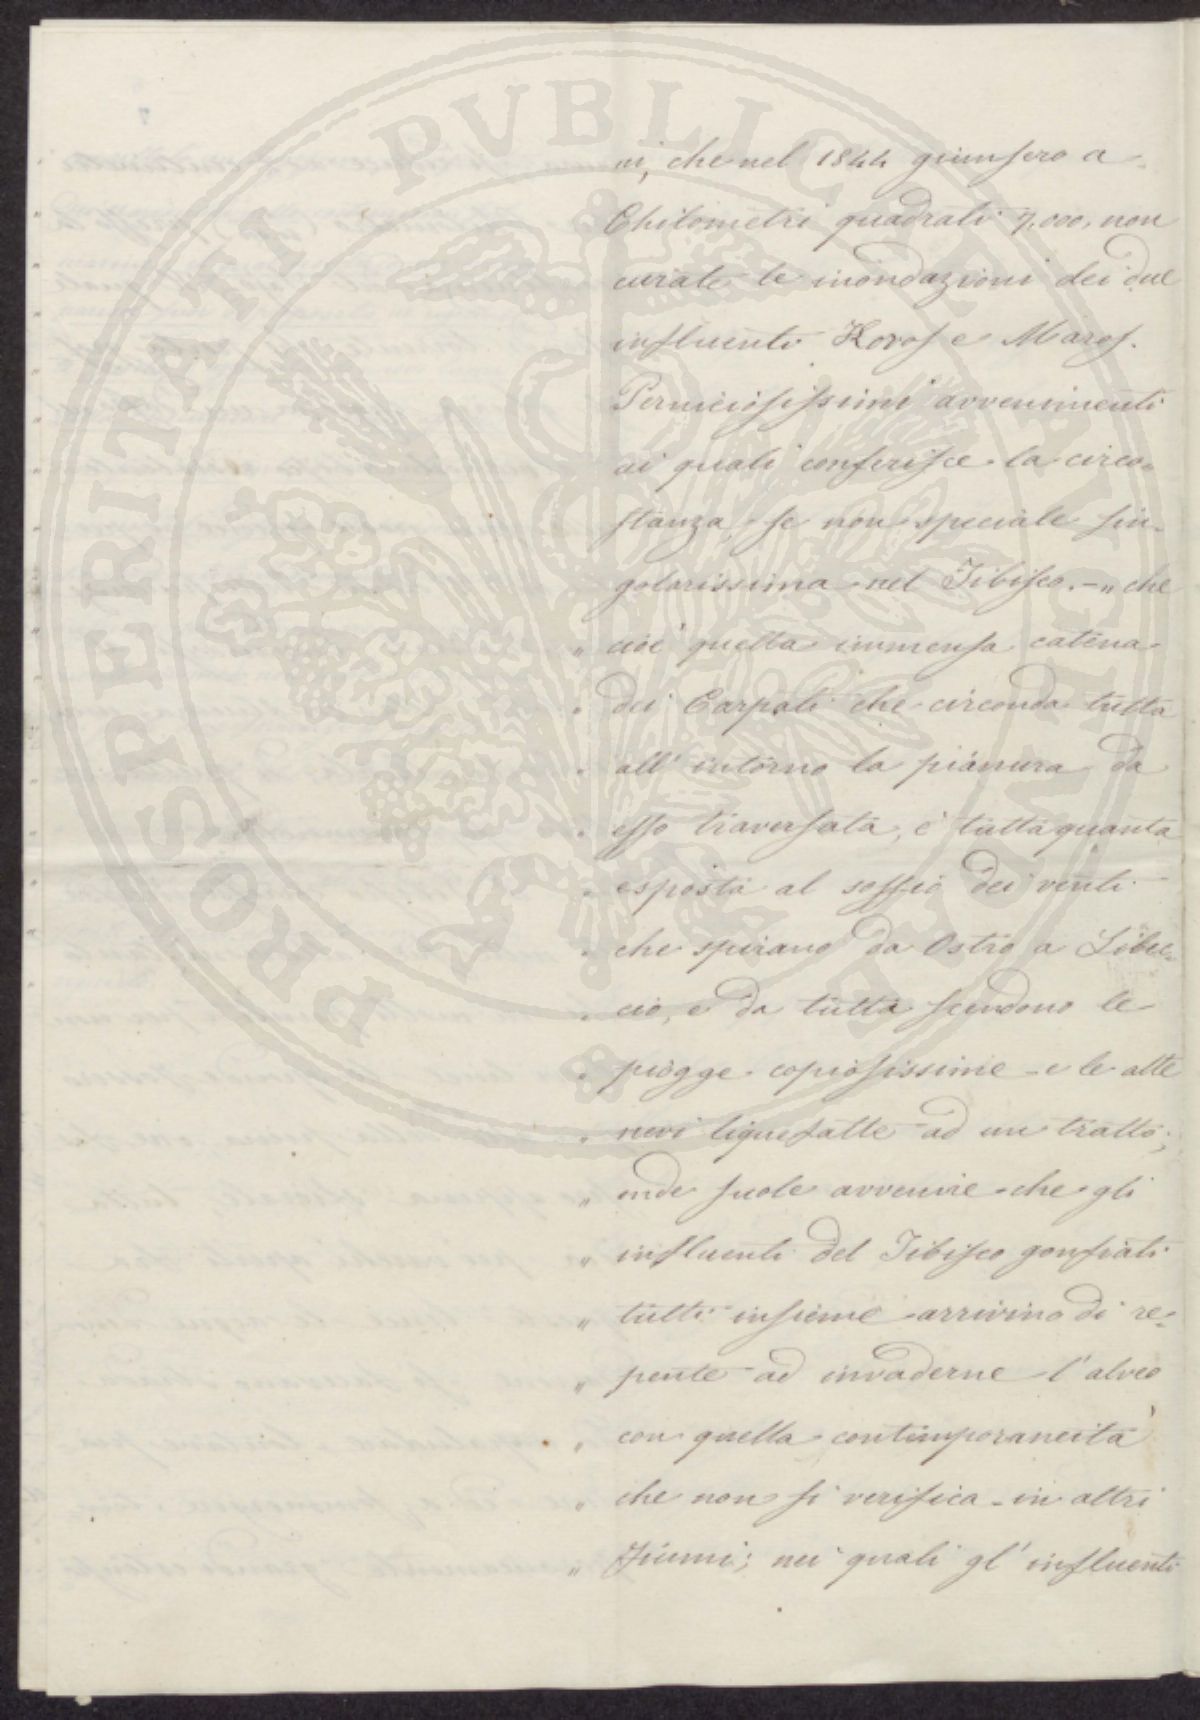 PROSPERITATI PVBLICE AVGENDAE
ni, che nel 1844 giunsero a
Chilometri quadrati 7,000, non
curate le inondazioni dei due
influenti Koros e Maros.
Perniciosissimi avvenimenti
ai quali conferisce la circo=
stanza, se non speciale sin=
golarissima nel Tibisco. – „ che
„ cioè quella immensa catena
„ dei Carpati che circonda tutta
„ all' intorno la pianura da
„ esso traversata, è tutta quanta
„ esposta al soffio dei venti
„ che spirano da Ostro a Libec=
„ cio, e da tutta scendono le
„ piogge copiosissime e le alte
„ nevi liquefatte ad un tratto;
„ onde suole avvenire che gli
„ influenti del Tibisco gonfiati
„ tutti insieme arrivino di re=
„ pente ad invaderne l'alveo
„ con quella contemporaneità
„ che non si verifica in altri
„ Fiumi; nei quali gl' influenti